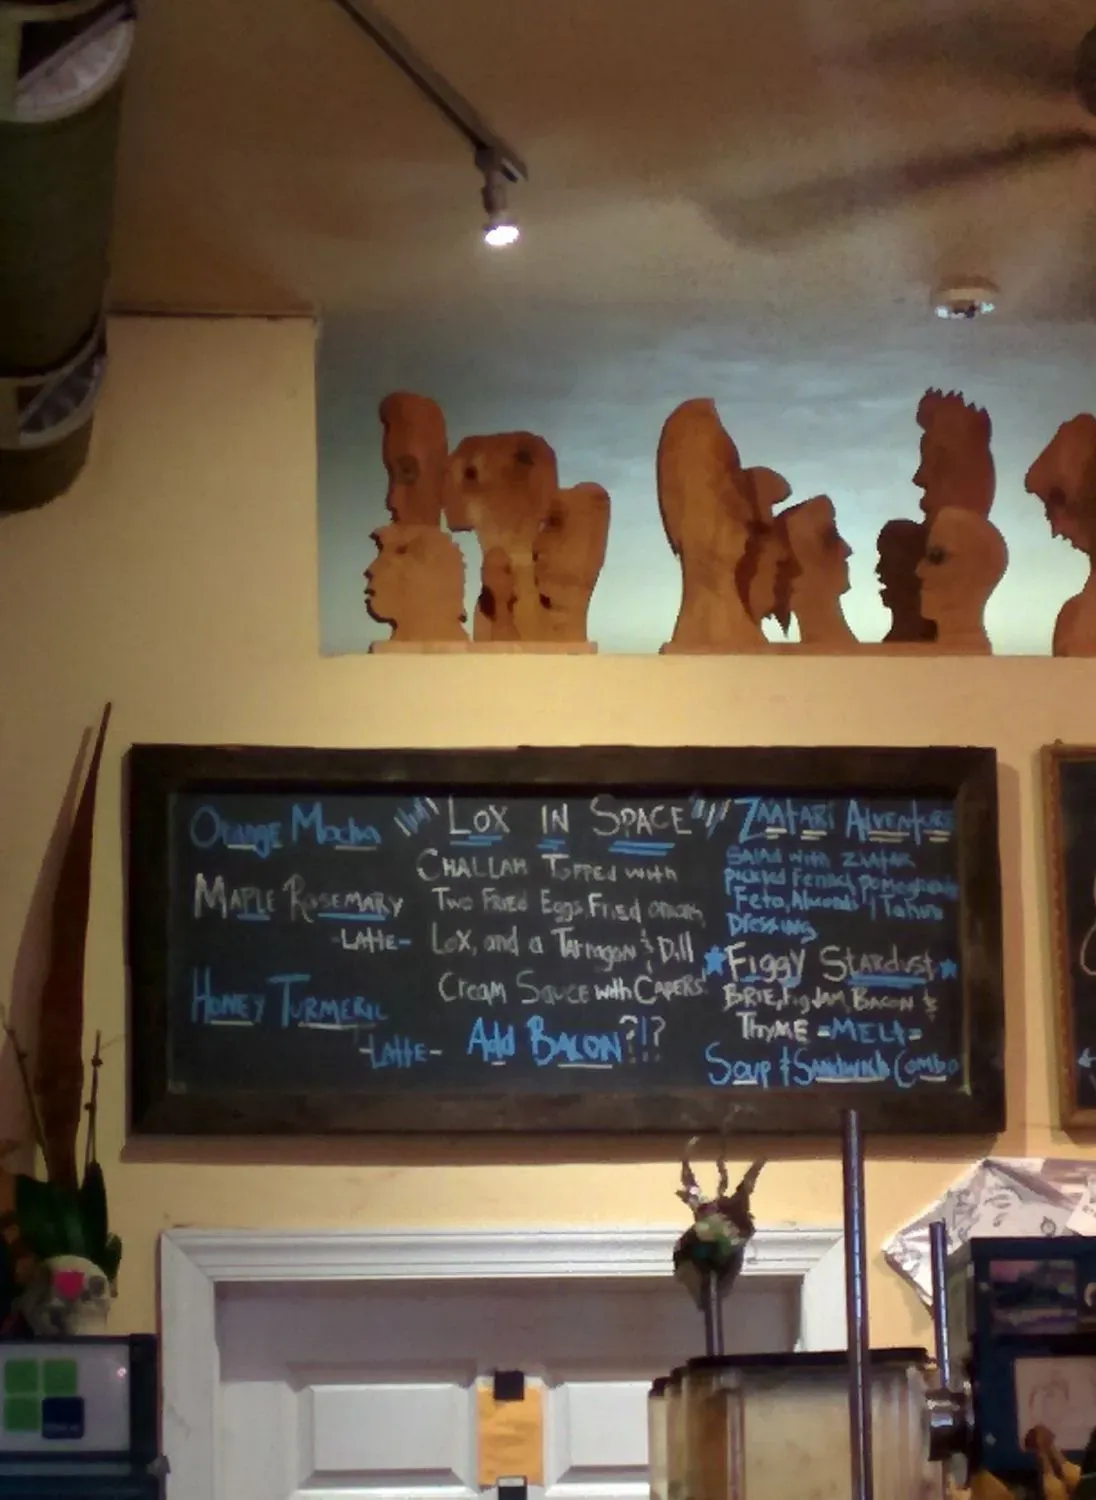 Orange Mocha
Maple Rosemary
-Latte-
Honey Turmeric
-Latte-
"Lox in Space"
Challah Topped with
Two Fried Eggs, Fried onion,
Lox, and a Tarragon & Dill
Cream Sauce with Capers!
Add Bacon?!?
Zaatari Adventure
Salad with Zaatar
pickled Fennel, pomegranate
Feta, Almonds & Tahini
Dressing
Figgy Stardust
Brie, Fig Jam, Bacon &
Thyme =Melt=
Soup & Sandwich Combo